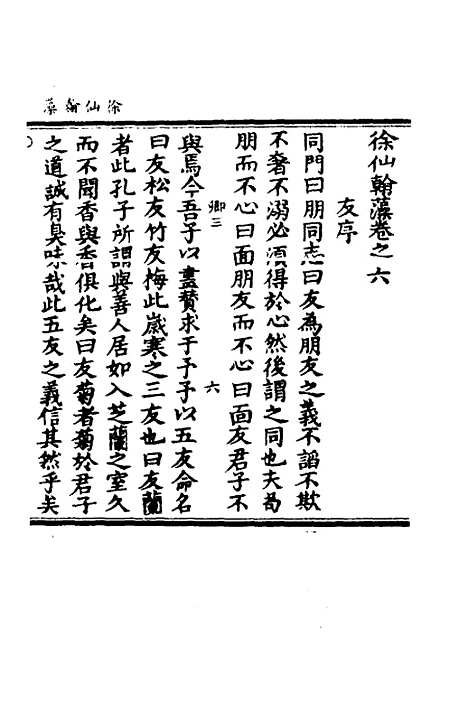 徐仙翰藻
徐仙翰藻卷之六
友序
同門曰朋同志曰友為朋友之義不諂不欺
不奢不溺必須得於心然後謂之同也夫苟
朋而不心曰面朋友而不心曰面友君子不
卿三
六
與焉今吾子以畫贊求于予予以五友命名
曰友松友竹友梅此歲寒之三友也曰友蘭
者此孔子所謂與善人居如入芝蘭之室久
而不聞香與香俱化矣曰友菊者菊於君子
之道誠有臭味哉此五友之義信其然乎矣